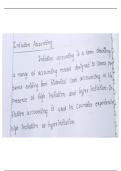 Inflation Accounting
Inflation accounting is a term describing
a range of accounting models designed to correct pro-
blems arising from historical cost accounting in the
presence of high inflation and hyper inflation. In-
flation accounting is used by countries experiencing
high inflation or hyperinflation.